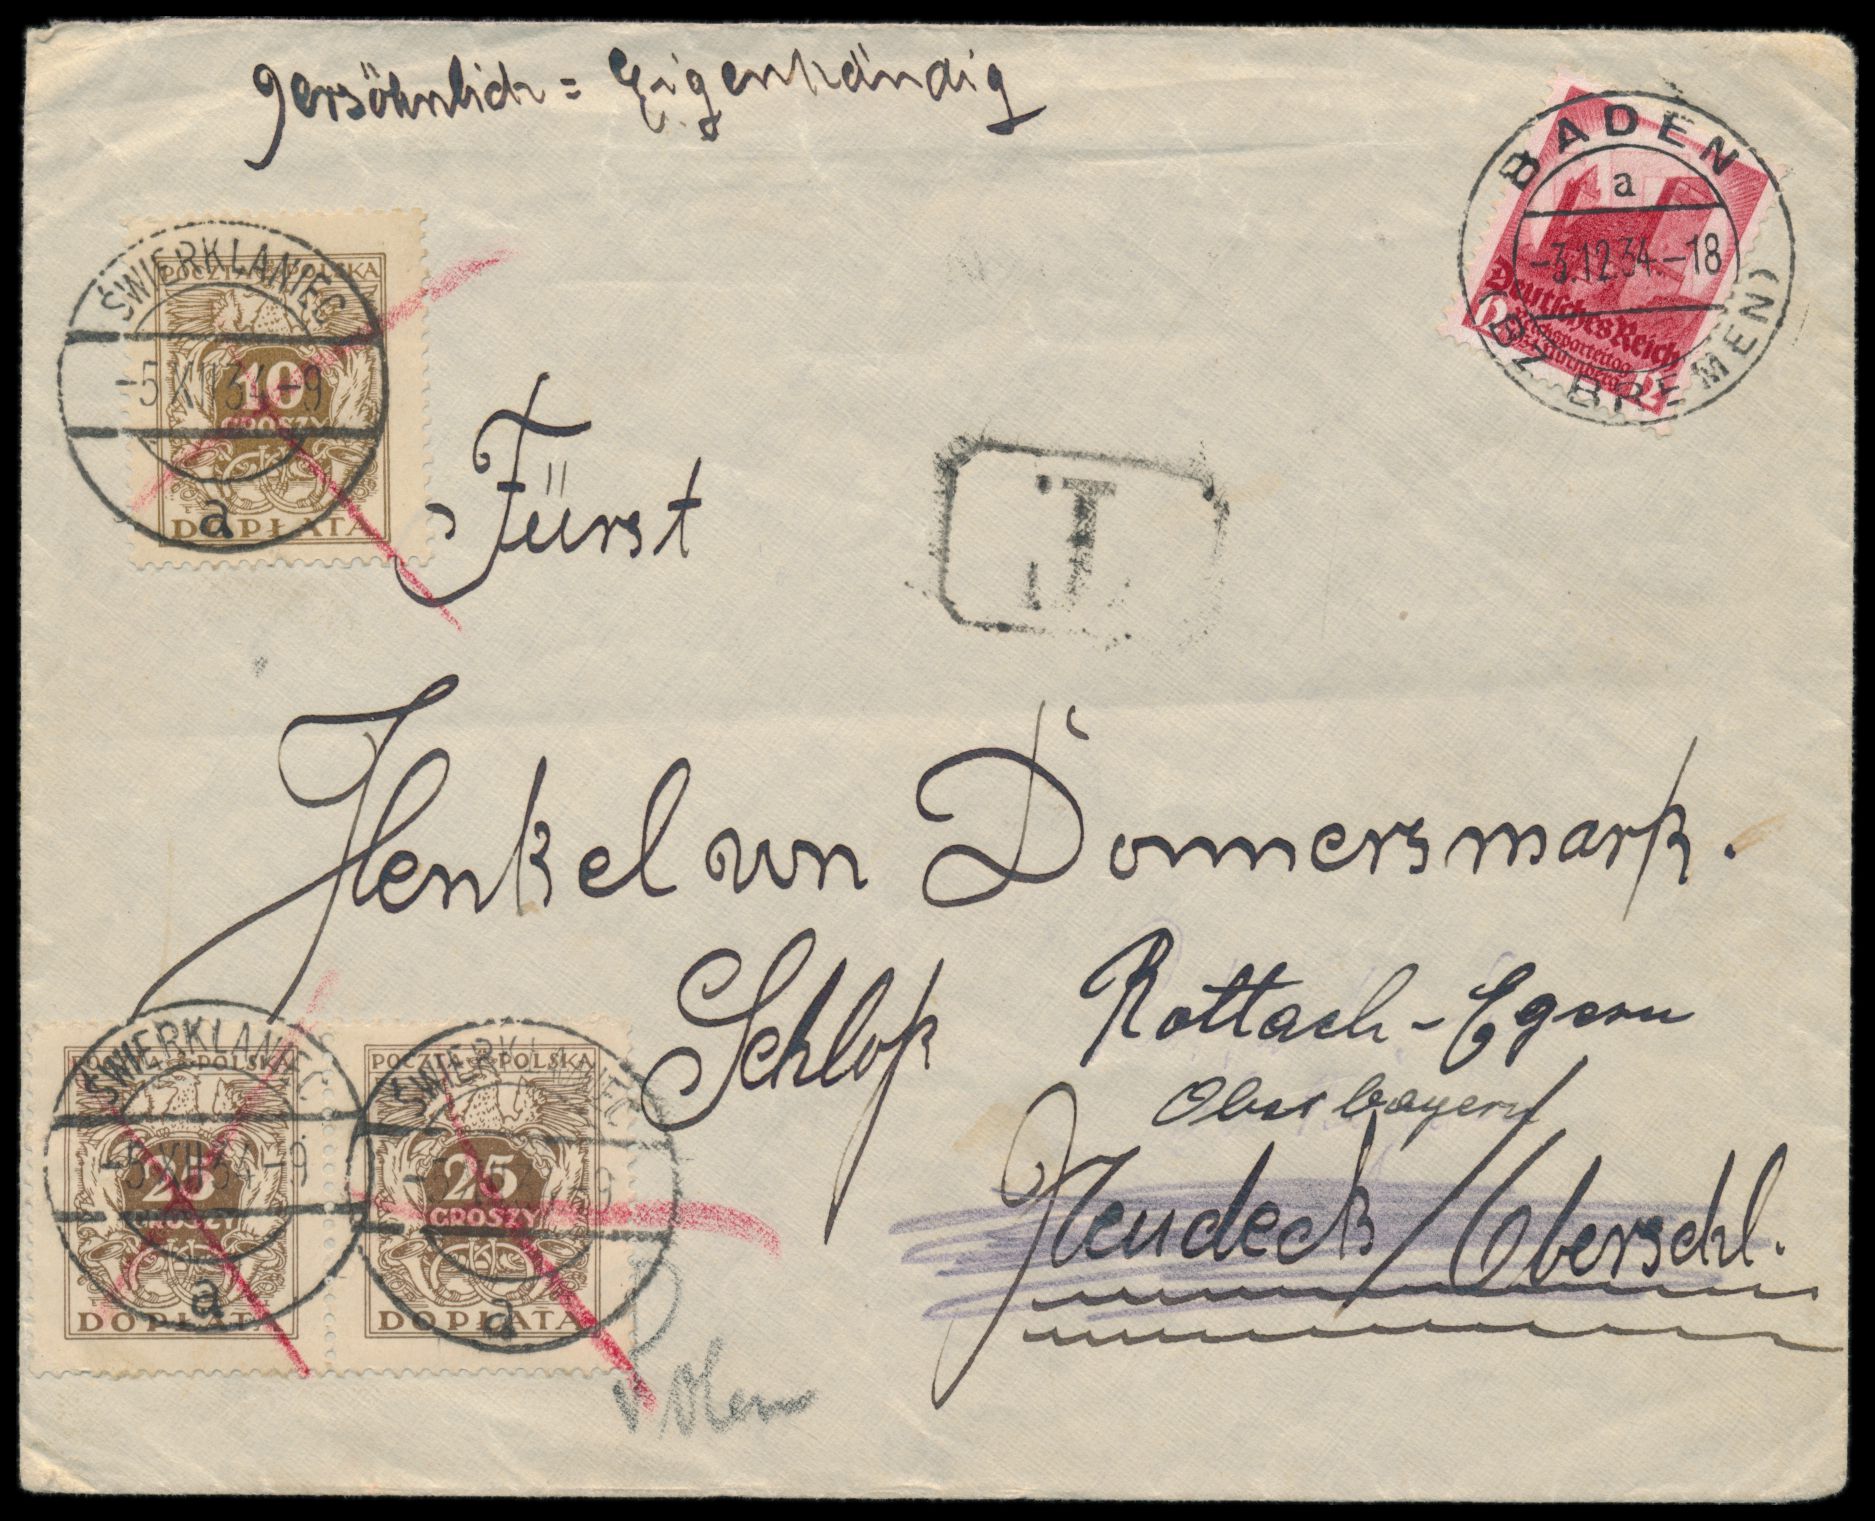 persöhnlich = Eigenhändig
BADEN
a
-3.12.34-18
(BZ BREMEN)
Deutsches Reich
Reichsparteitag
1934 Nürnberg
ŚWIERKLANIEC
POCZTA POLSKA
-5 XII 34-9
10
GROSZY
DOPŁATA
a
Fürst
T
Henkel von Donnersmark.
Schloß Rottach-Egern
Oberbayern
Neudeck/Oberschl.
ŚWIERKLANIEC
POCZTA POLSKA
-5 XII 34-9
25
GROSZY
DOPŁATA
a
ŚWIERKLANIEC
POCZTA POLSKA
25
GROSZY
DOPŁATA
a